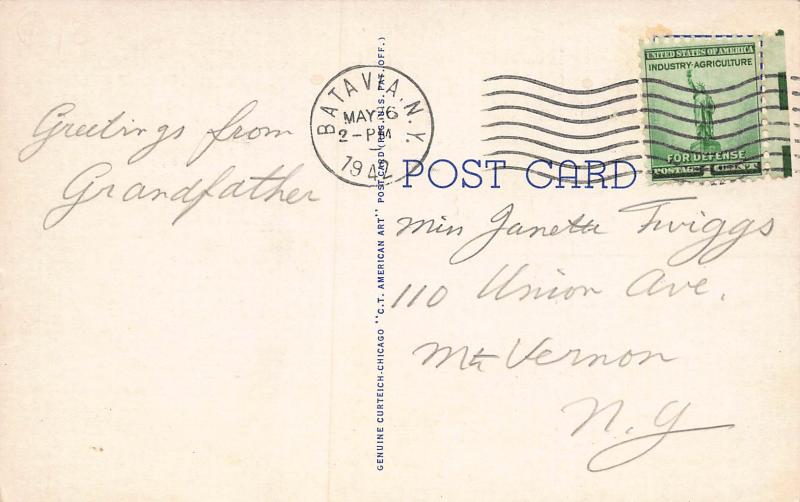 Greetings from
Grandfather
BATAVIA, N.Y.
MAY 6
2-PM
1942
UNITED STATES OF AMERICA
INDUSTRY-AGRICULTURE
FOR DEFENSE
POSTAGE
POST CARD
Miss Janett Twiggs
110 Union Ave.
Mt. Vernon
N.Y
GENUINE CURTEICH-CHICAGO "C.T. AMERICAN ART" POST CARD (REG. U.S. PAT. OFF.)